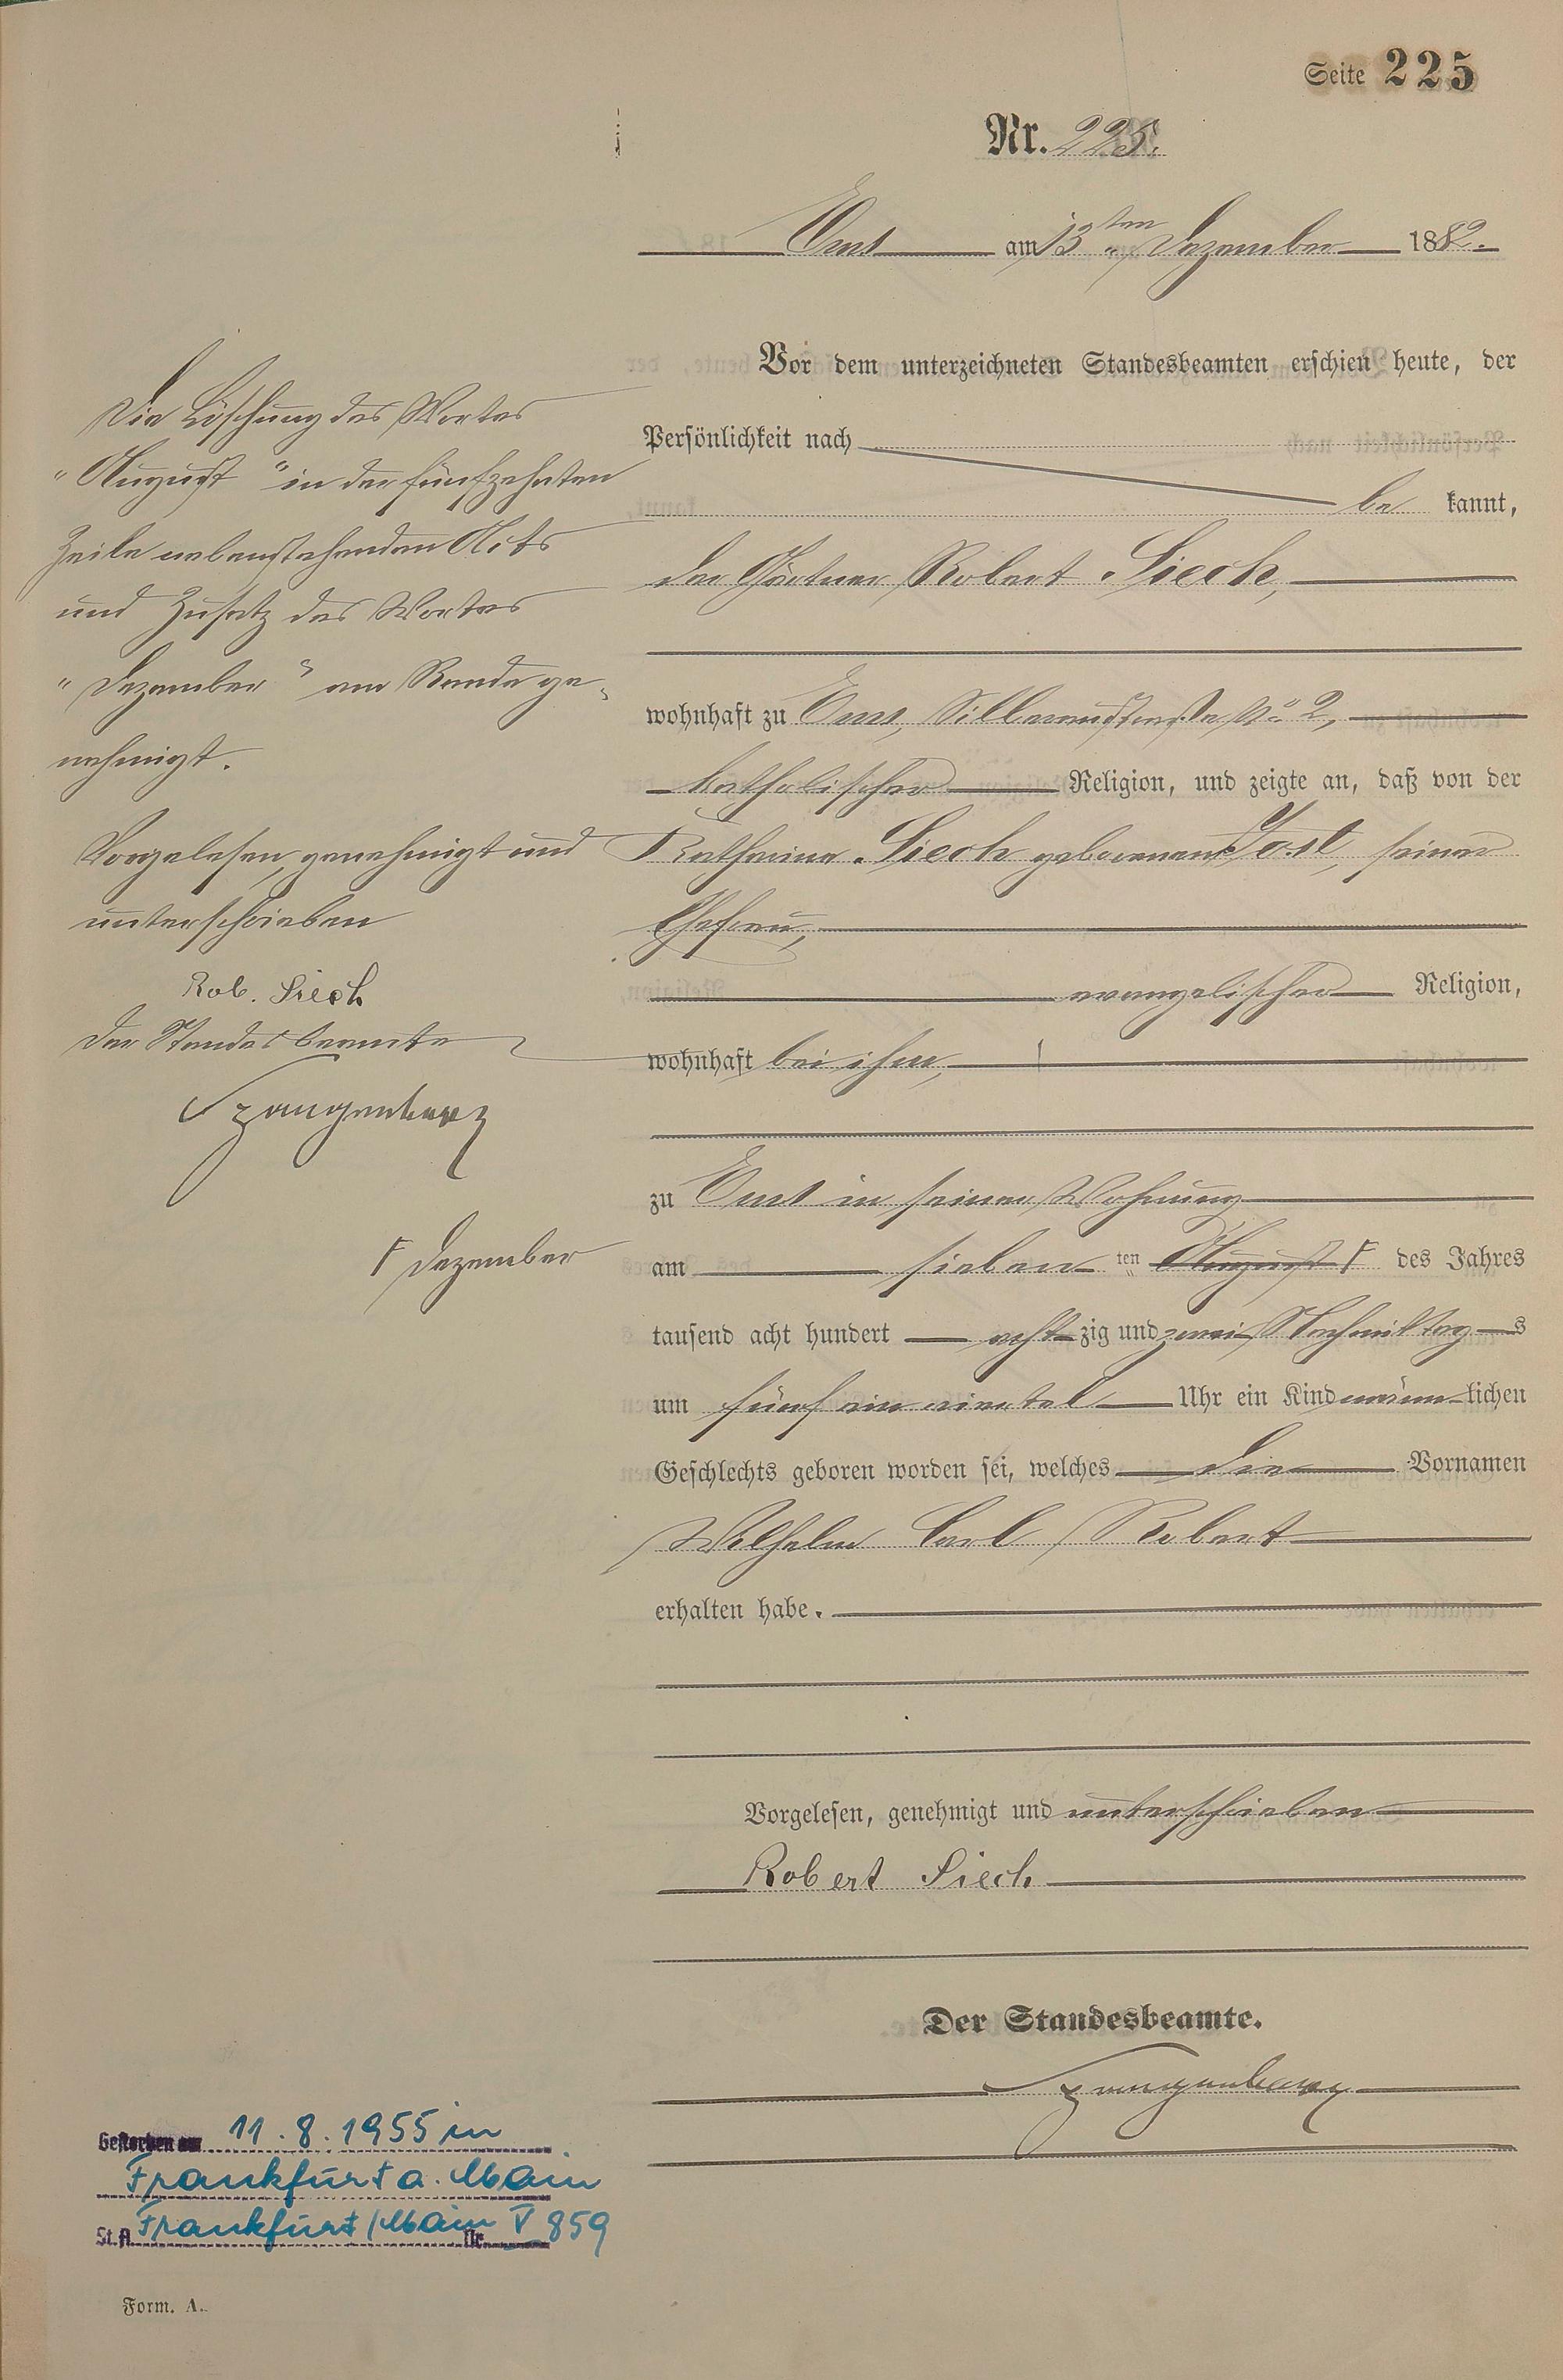 Seite 225
Nr. 225.
Ems am 13ten Dezember 1882.
Vor dem unterzeichneten Standesbeamten erschien heute, der
Persönlichkeit nach
be kannt,
der Gärtner Robert Siech,
wohnhaft zu Ems, Silberaustraße No 2,
katholischer Religion, und zeigte an, daß von der
Katharina Siech geborenen Jost, seiner
Ehefrau,
evangelischer Religion,
wohnhaft bei ihm,
zu Ems in seiner Wohnung
am sieben ten August des Jahres
tausend acht hundert acht zig und zwei Nachmittag s
um fünf ein viertel Uhr ein Kind männ lichen
Geschlechts geboren worden sei, welches die Vornamen
Wilhelm Carl Robert
erhalten habe.
Vorgelesen, genehmigt und unterschrieben
Robert Siech
Der Standesbeamte.
Die Löschung des Wortes
"August" in der fünfzehnten
Zeile nebenstehenden Akts
und Zusatz des Wortes
"Dezember" am Rande ge-
nehmigt.
Vorgelesen, genehmigt und
unterschrieben
Rob. Siech
Der Standesbeamte
Dezember
Gestorben am 11.8.1955 in
Frankfurt a. Main
St.A. Frankfurt/Main Nr. V 859
Form. A.